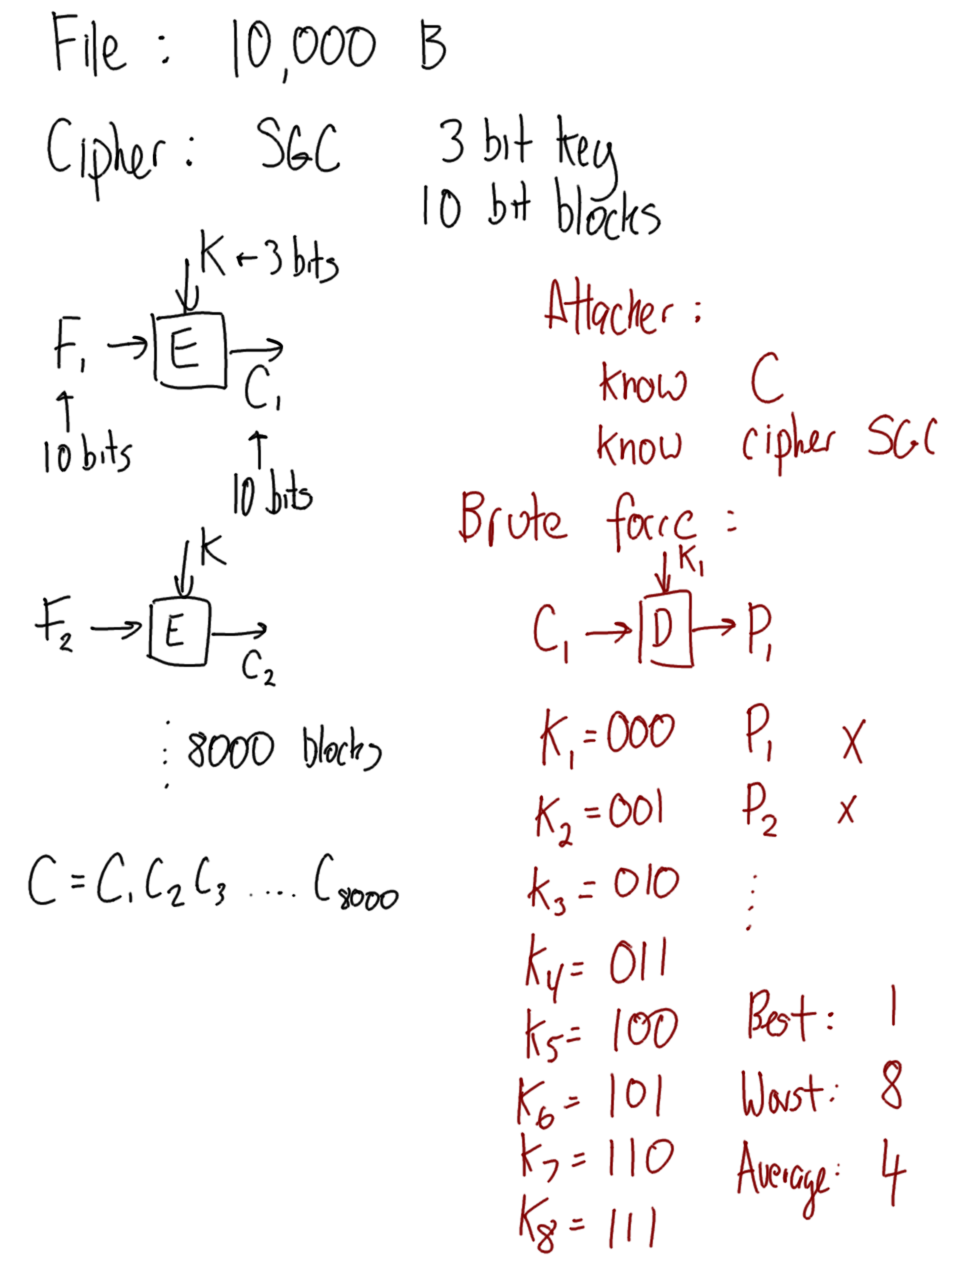 File : 10,000 B
Cipher : SGC 3 bit key
10 bit blocks
K ← 3 bits
F₁ → E → C₁
10 bits
10 bits
K
F₂ → E → C₂
⋮ 8000 blocks
C = C₁ C₂ C₃ .... C₈₀₀₀
Attacker :
know C
know cipher SGC
Brute force :
K₁
C₁ → D → P₁
K₁ = 000 P₁ X
K₂ = 001 P₂ X
K₃ = 010 ⋮
K₄ = 011
K₅ = 100
K₆ = 101
K₇ = 110
K₈ = 111
Best : 1
Worst : 8
Average : 4